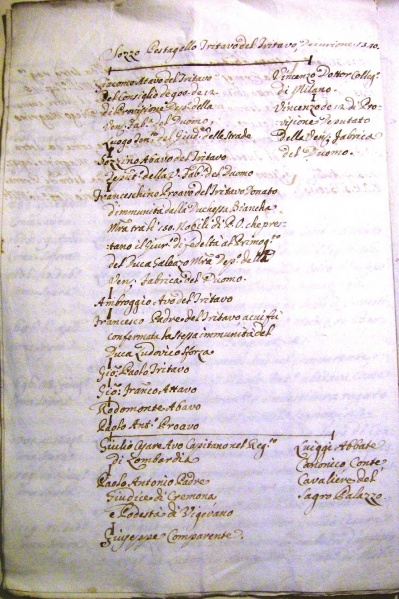 Sozzo Pestagallo Tritavo del Tritavo Decurione 1340.
Giacomo Atavo del Tritavo
del Consiglio de 900. de 12
di Provisione Dep.º della
Ven: Fab.ª del Duomo,
Luogo Ten.te del Giud.e delle strade
Vincenzo Dottor Colleg.º
di Milano.
Vincenzo de 12 di Pro-
visione Deputato
della Ven: Fabrica
del Duomo.
Sozzino Abavo del Tritavo
Dep.º della V. Fab.ª del Duomo
Franceschino Proavo del Tritavo Donato
d'immunità dalla Duchessa Biancha
Mra tra li 150. Nobili di P. O. che pres-
tano il Giur.º di fedeltà al Primog.º
del Duca Galeazo Mra Dep.º della
Ven: fabrica del Duomo.
Ambroggio Avo del Tritavo
Francesco Padre del Tritavo a cui fu
confermata la stessa immunità del
Duca Ludovico Sforza
Gio: Paolo Tritavo
Gio: Franco Attavo
Rodomonte Abavo
Paolo Ant.º Proavo
Giulio Cesare Avo Capitano nel Reg.º
di Lombardia
Luiggi Abbate
Canonico Conte
Cavaliere del
Sagro Palazzo
Paolo Antonio Padre
Giudice di Cremona
e Podestà di Vigevano
Giuseppe Comparente.